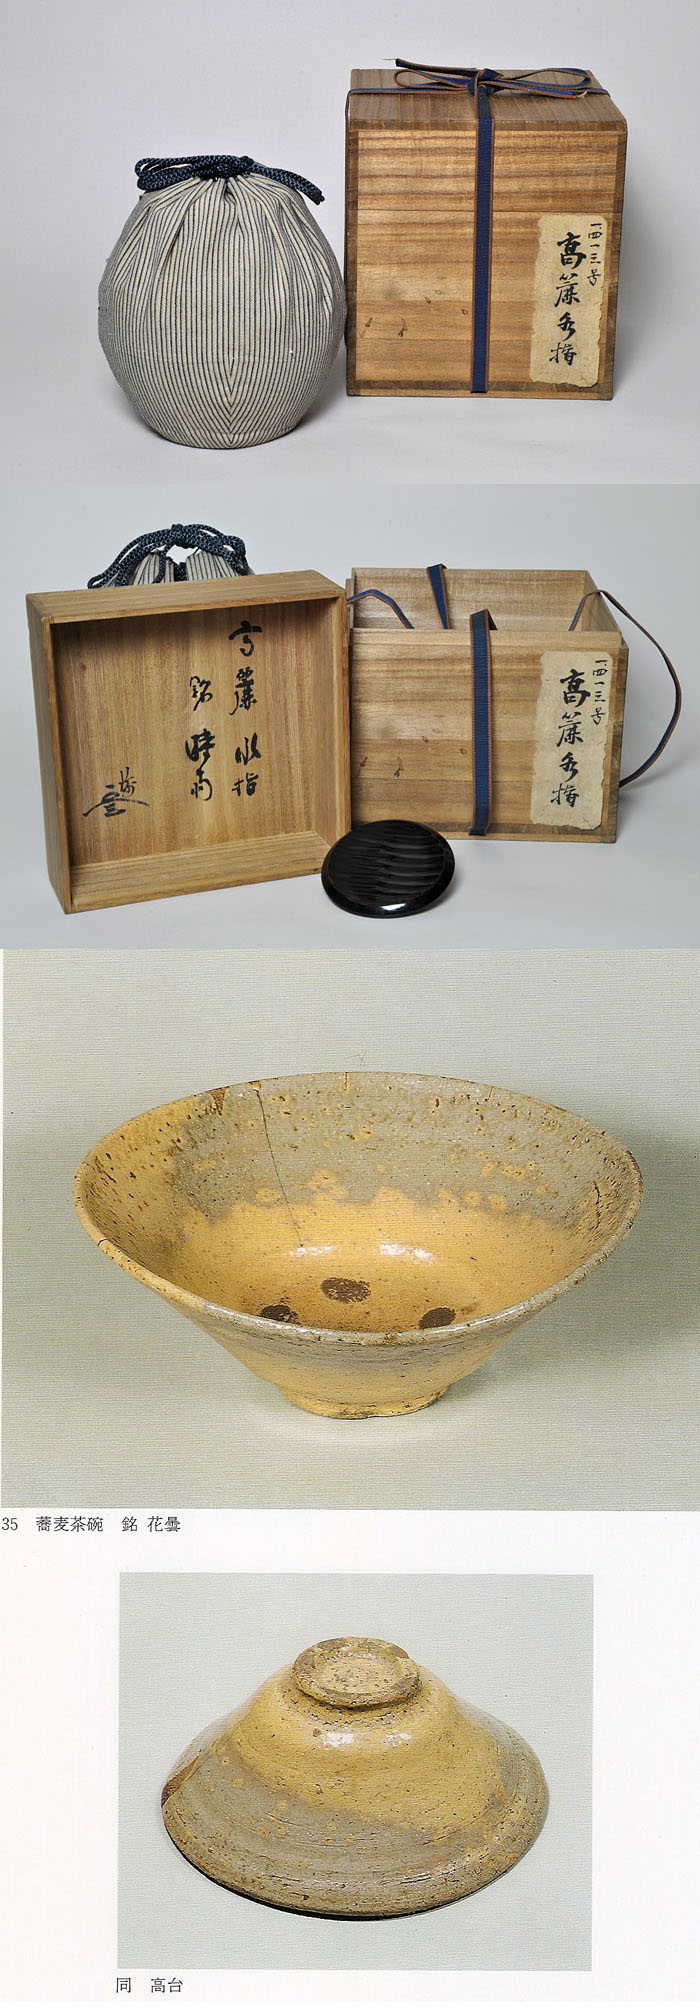 一四一三号
髙簾水指
高簾 水指
銘 時雨
一四一三号
髙簾水指
35 蕎麦茶碗 銘 花曇
同 高台